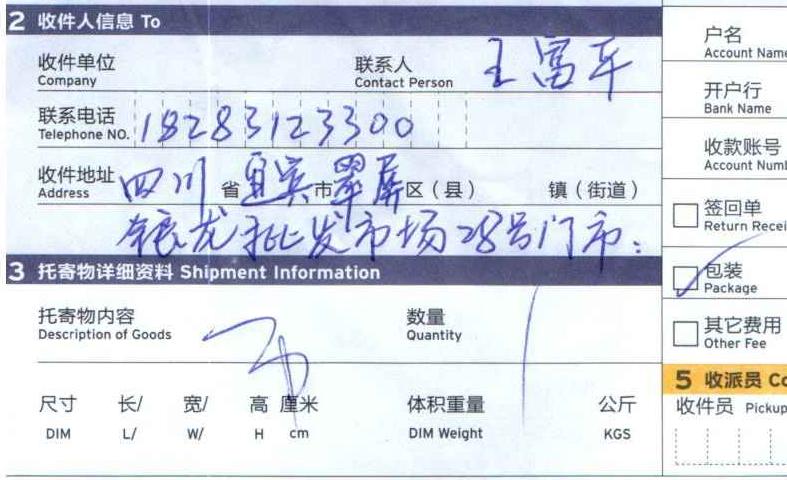 2 收件人信息 To
收件单位
Company
联系人 王富平
Contact Person
联系电话 18283123300
Telephone NO.
收件地址 四川省宜宾市翠屏区（县） 镇（街道）
Address
银龙批发市场28号门市
3 托寄物详细资料 Shipment Information
托寄物内容
Description of Goods
数量 1
Quantity
尺寸 长/ 宽/ 高 厘米
DIM L/ W/ H cm
体积重量 公斤
DIM Weight KGS
户名
Account Name
开户行
Bank Name
收款账号
Account Numb
签回单
Return Recei
包装
Package
其它费用
Other Fee
5 收派员 Co
收件员 Pickup